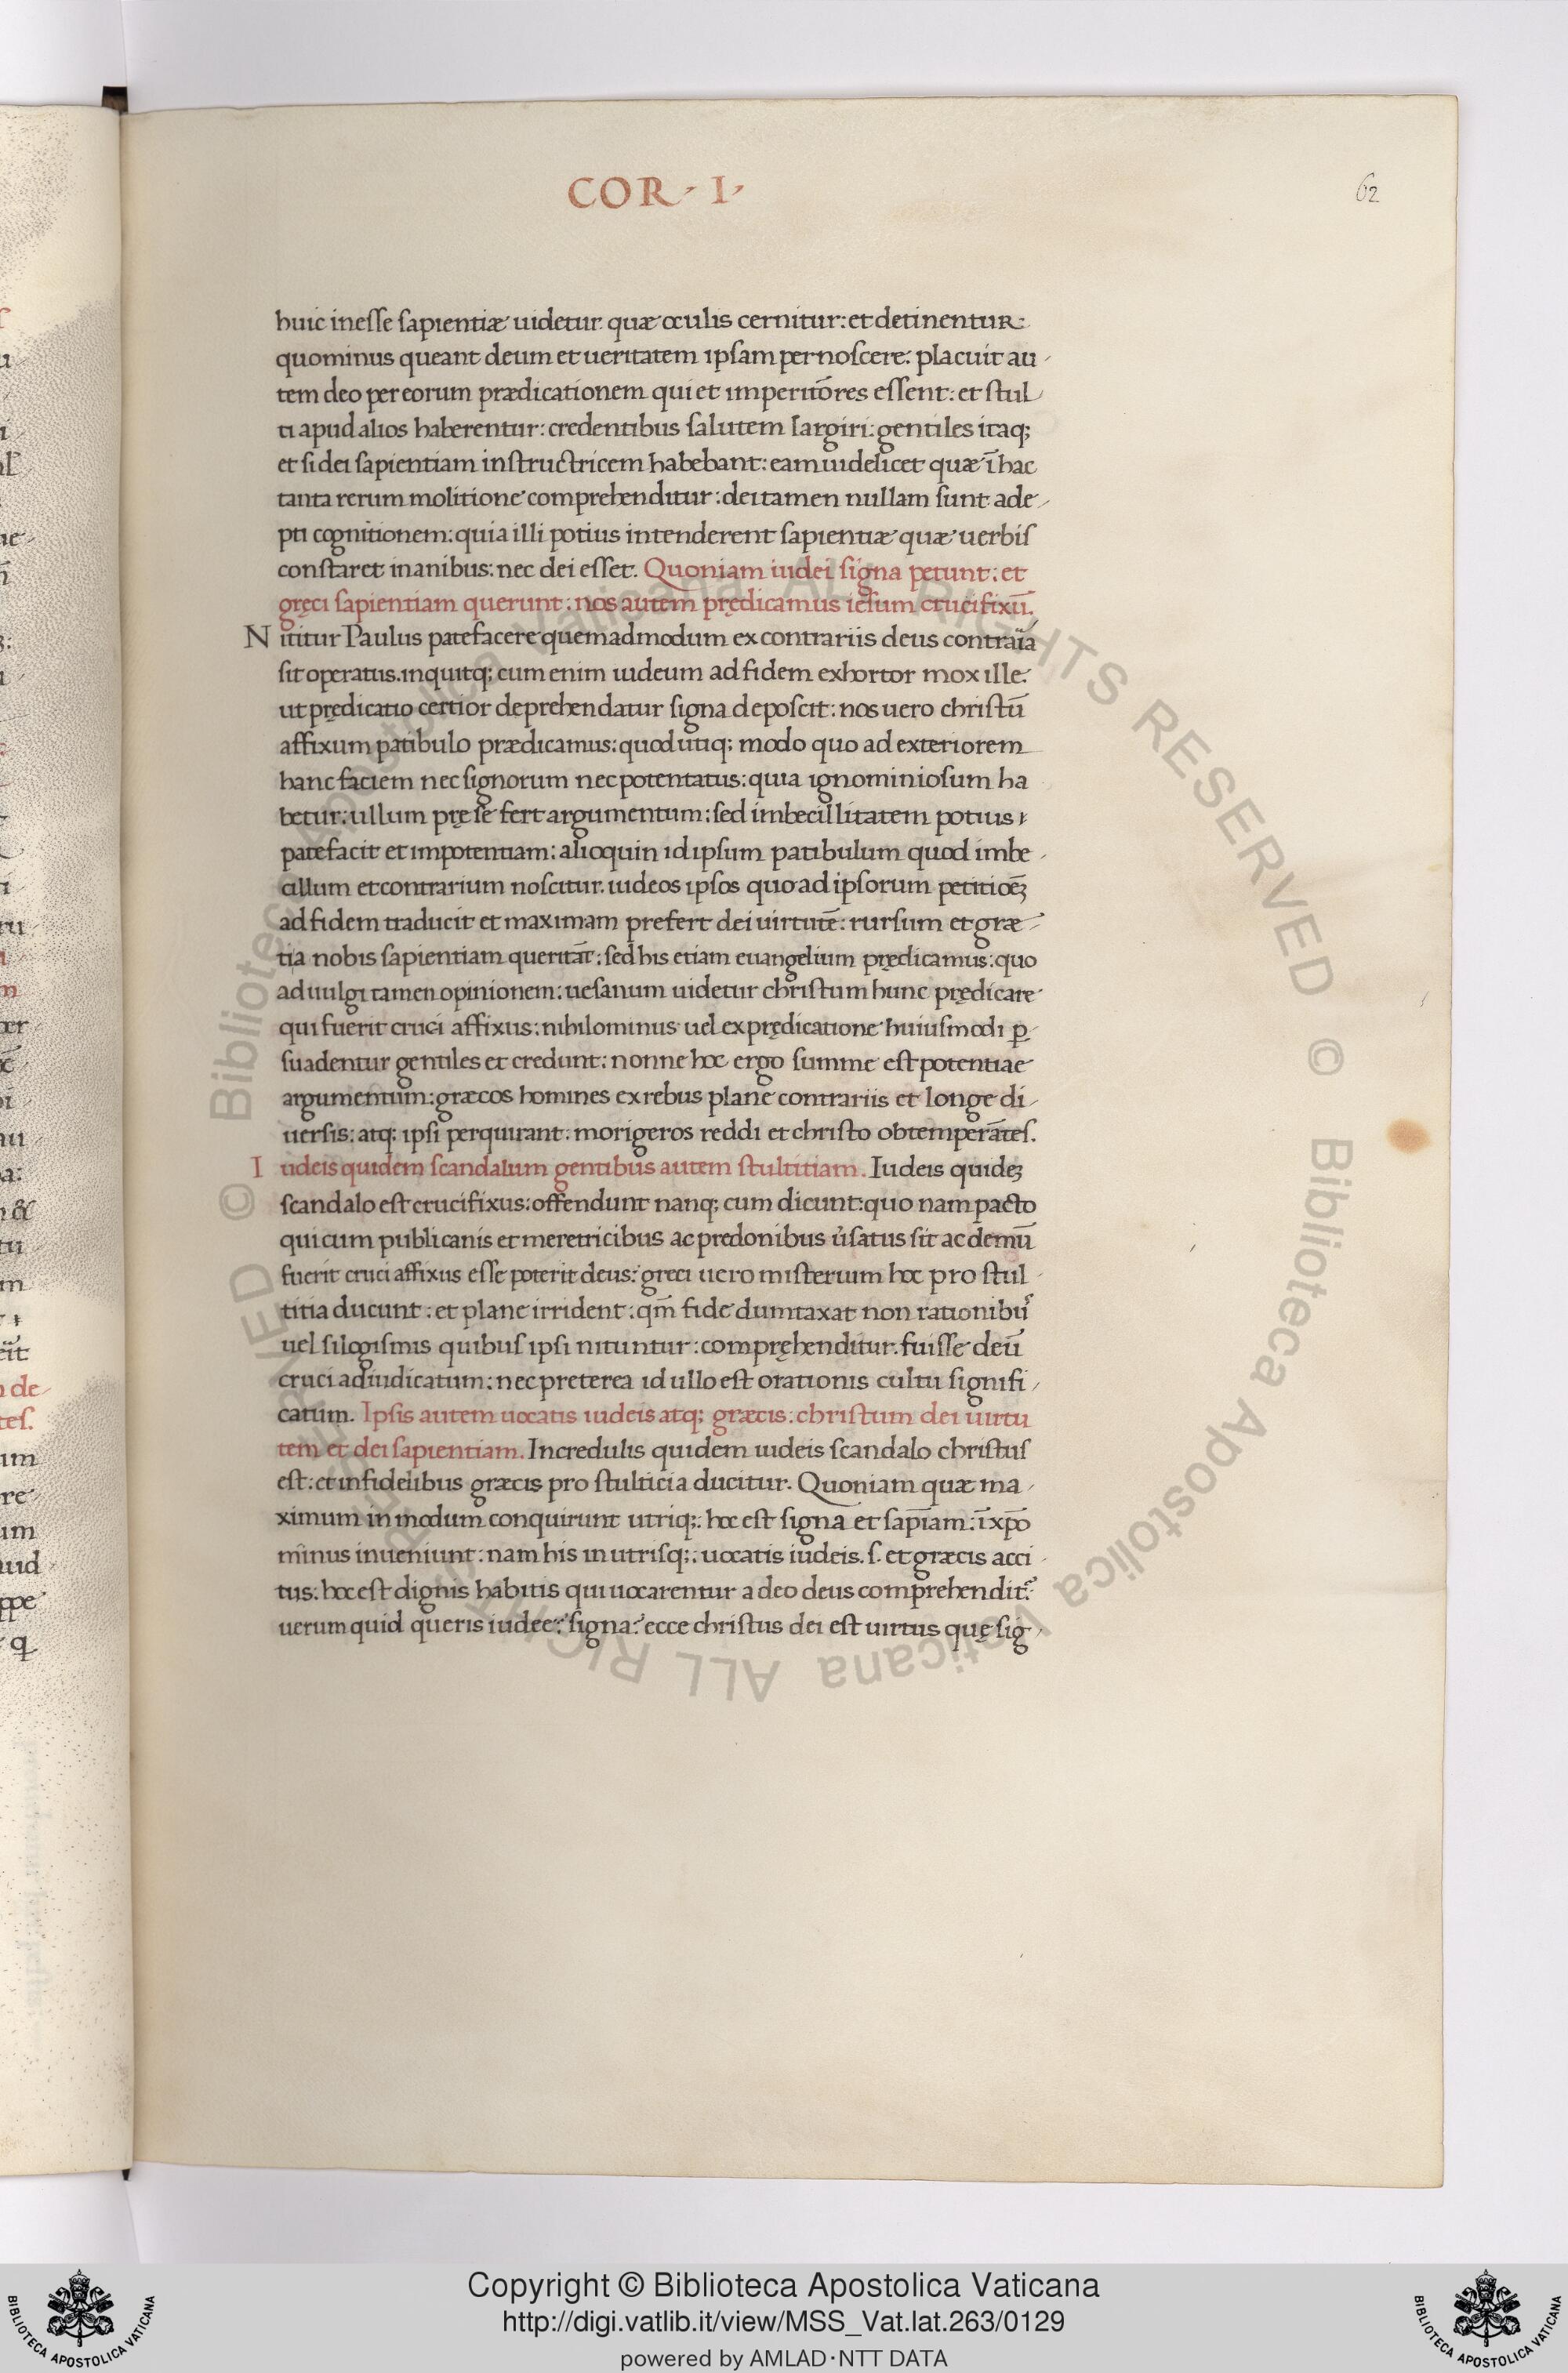 COR · I ·
62
huic inesse sapientiæ uidetur. quæ oculis cernitur: et detinentur
quominus queant deum et ueritatem ipsam pernoscere: placuit au
tem deo per eorum prædicationem qui et imperitōres essent: et stul
ti apud alios haberentur: credentibus salutem largiri: gentiles itaq;
et si dei sapientiam instructricem habebant: eam uidelicet quæ ī hac
tanta rerum molitione comprehenditur: dei tamen nullam sunt ade
pti cognitionem: quia illi potius intenderent sapientiæ quæ uerbis
constaret inanibus: nec dei esset. Quoniam iudei signa petunt: et
gręci sapientiam querunt: nos autem prędicamus iesum crucifixū.
N ititur Paulus patefacere quemadmodum ex contrariis deus contraia
sit operatus. inquitq; cum enim iudeum ad fidem exhortor mox ille:
ut prędicatio certior deprehendatur signa deposcit: nos uero christū
affixum patibulo prædicamus: quod utiq; modo quo ad exteriorem
hanc faciem nec signorum nec potentatus: quia ignominiosum ha
betur: ullum prę se fert argumentum: sed imbecillitatem potius
patefacit et impotentiam: alioquin id ipsum patibulum quod imbe
cillum et contrarium noscitur. iudeos ipsos quo ad ipsorum petitioēꝫ
ad fidem traducit et maximam prefert dei uirtutē: rursum et græ
tia nobis sapientiam queritāt: sed his etiam euangelium prędicamus: quo
ad uulgi tamen opinionem: uesanum uidetur christum hunc prędicare
qui fuerit cruci affixus: nihilominus uel ex prędicatione huiusmodi ꝑ
suadentur gentiles et credunt: nonne hoc ergo summe est potentiae
argumentum: græcos homines ex rebus plane contrariis et longe di
uersis: atq; ipsi perquirant: morigeros reddi et christo obtemperātes.
I udeis quidem scandalum gentibus autem stultitiam. Iudeis quideꝫ
scandalo est crucifixus: offendunt nanq; cum dicunt: quo nam pacto
qui cum publicanis et meretricibus ac predonibus u̓satus sit ac demū
fuerit cruci affixus esse poterit deus: greci uero misterium hoc pro stul
titia ducunt: et plane irrident: qm̄ fide dumtaxat non rationibus
uel silogismis quibus ipsi nituntur: compręhenditur. fuisse deū
cruci adiudicatum: nec preterea id ullo est orationis cultu signifi
catum. Ipsis autem uocatis iudeis atq; græcis: christum dei uirtu
tem et dei sapientiam. Incredulis quidem iudeis scandalo christus
est: et infidelibus græcis pro stulticia ducitur. Quoniam quæ ma
ximum in modum conquirunt utriq;: hoc est signa et sap̄iam: ī xp̄o
minus inueniunt: nam his in utrisq;: uocatis iudeis. s. et græcis acci
tus: hoc est dignis habitis qui uocarentur a deo deus comprehendit̃:
uerum quid queris iudee? signa? ecce christus dei est uirtus quę sig
© Biblioteca Apostolica Vaticana ALL RIGHTS RESERVED
Copyright © Biblioteca Apostolica Vaticana
http://digi.vatlib.it/view/MSS_Vat.lat.263/0129
powered by AMLAD·NTT DATA
BIBLIOTECA APOSTOLICA VATICANA
BIBLIOTECA APOSTOLICA VATICANA